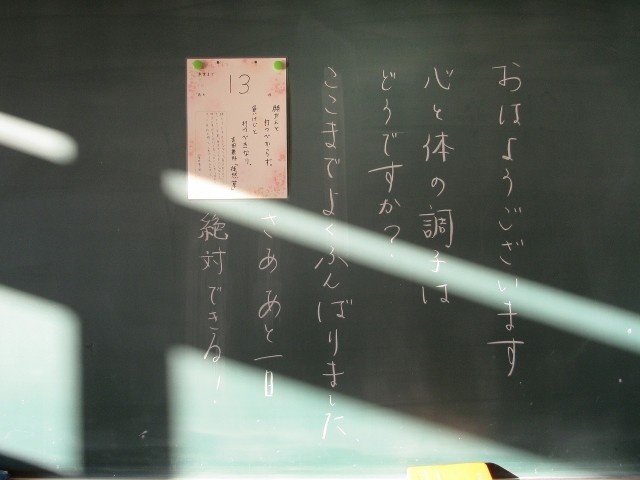 おはようございます
心と体の調子は
どうですか?
ここまでよくふんばりました
さあ あと一日
絶対できる!
13
勝たんと
打つべからず、
負けじと
打つべきなり。
吉田兼好「徒然草」